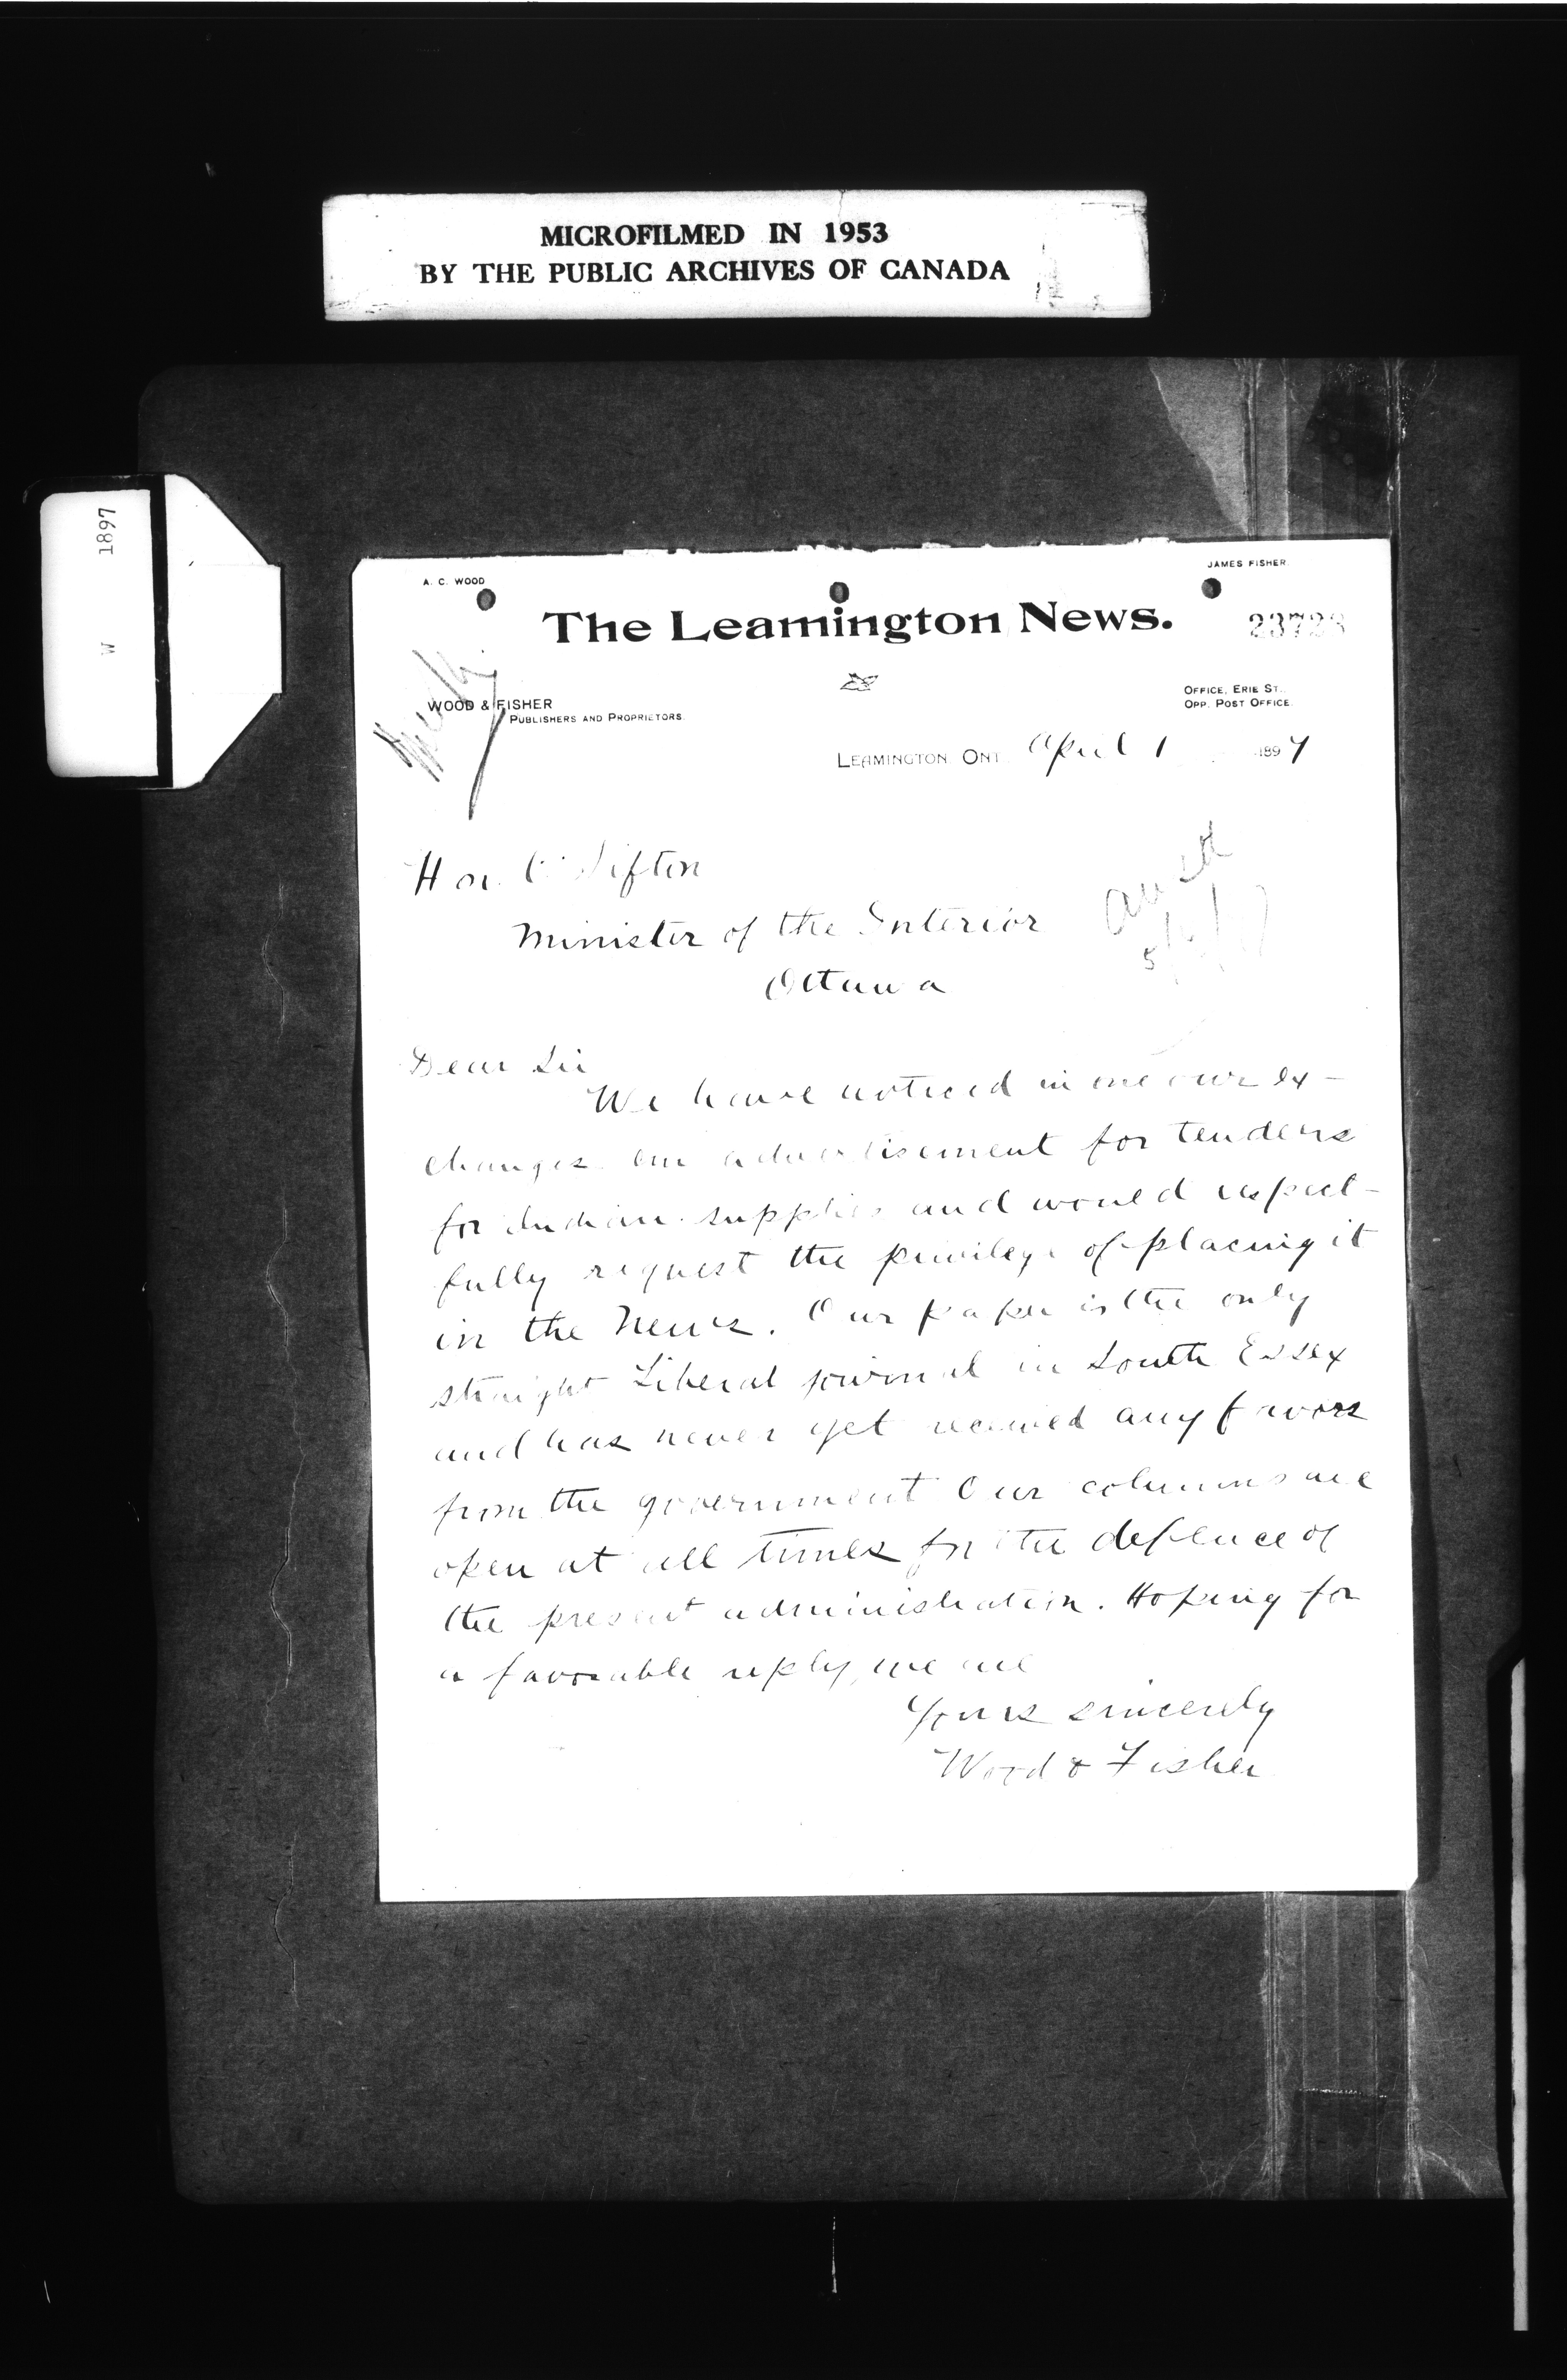 MICROFILMED IN 1953
BY THE PUBLIC ARCHIVES OF CANADA
1897
W
A. C. WOOD
JAMES FISHER.
The Leamington News.
WOOD & FISHER
PUBLISHERS AND PROPRIETORS.
OFFICE, ERIE ST.,
OPP. POST OFFICE.
LEAMINGTON, ONT. April 1 1897
Hon. C Sifton
Minister of the Interior
Ottawa
Dear Sir
We have noticed in one our ex-
changes an advertisement for tenders
for Indian supplies and would respect-
fully request the privilege of placing it
in the News. Our paper is the only
straight Liberal journal in South Essex
and has never yet received any favors
from the government Our columns are
open at all times for the defence of
the present administration. Hoping for
a favorable reply, we are
Yours sincerely
Wood & Fisher